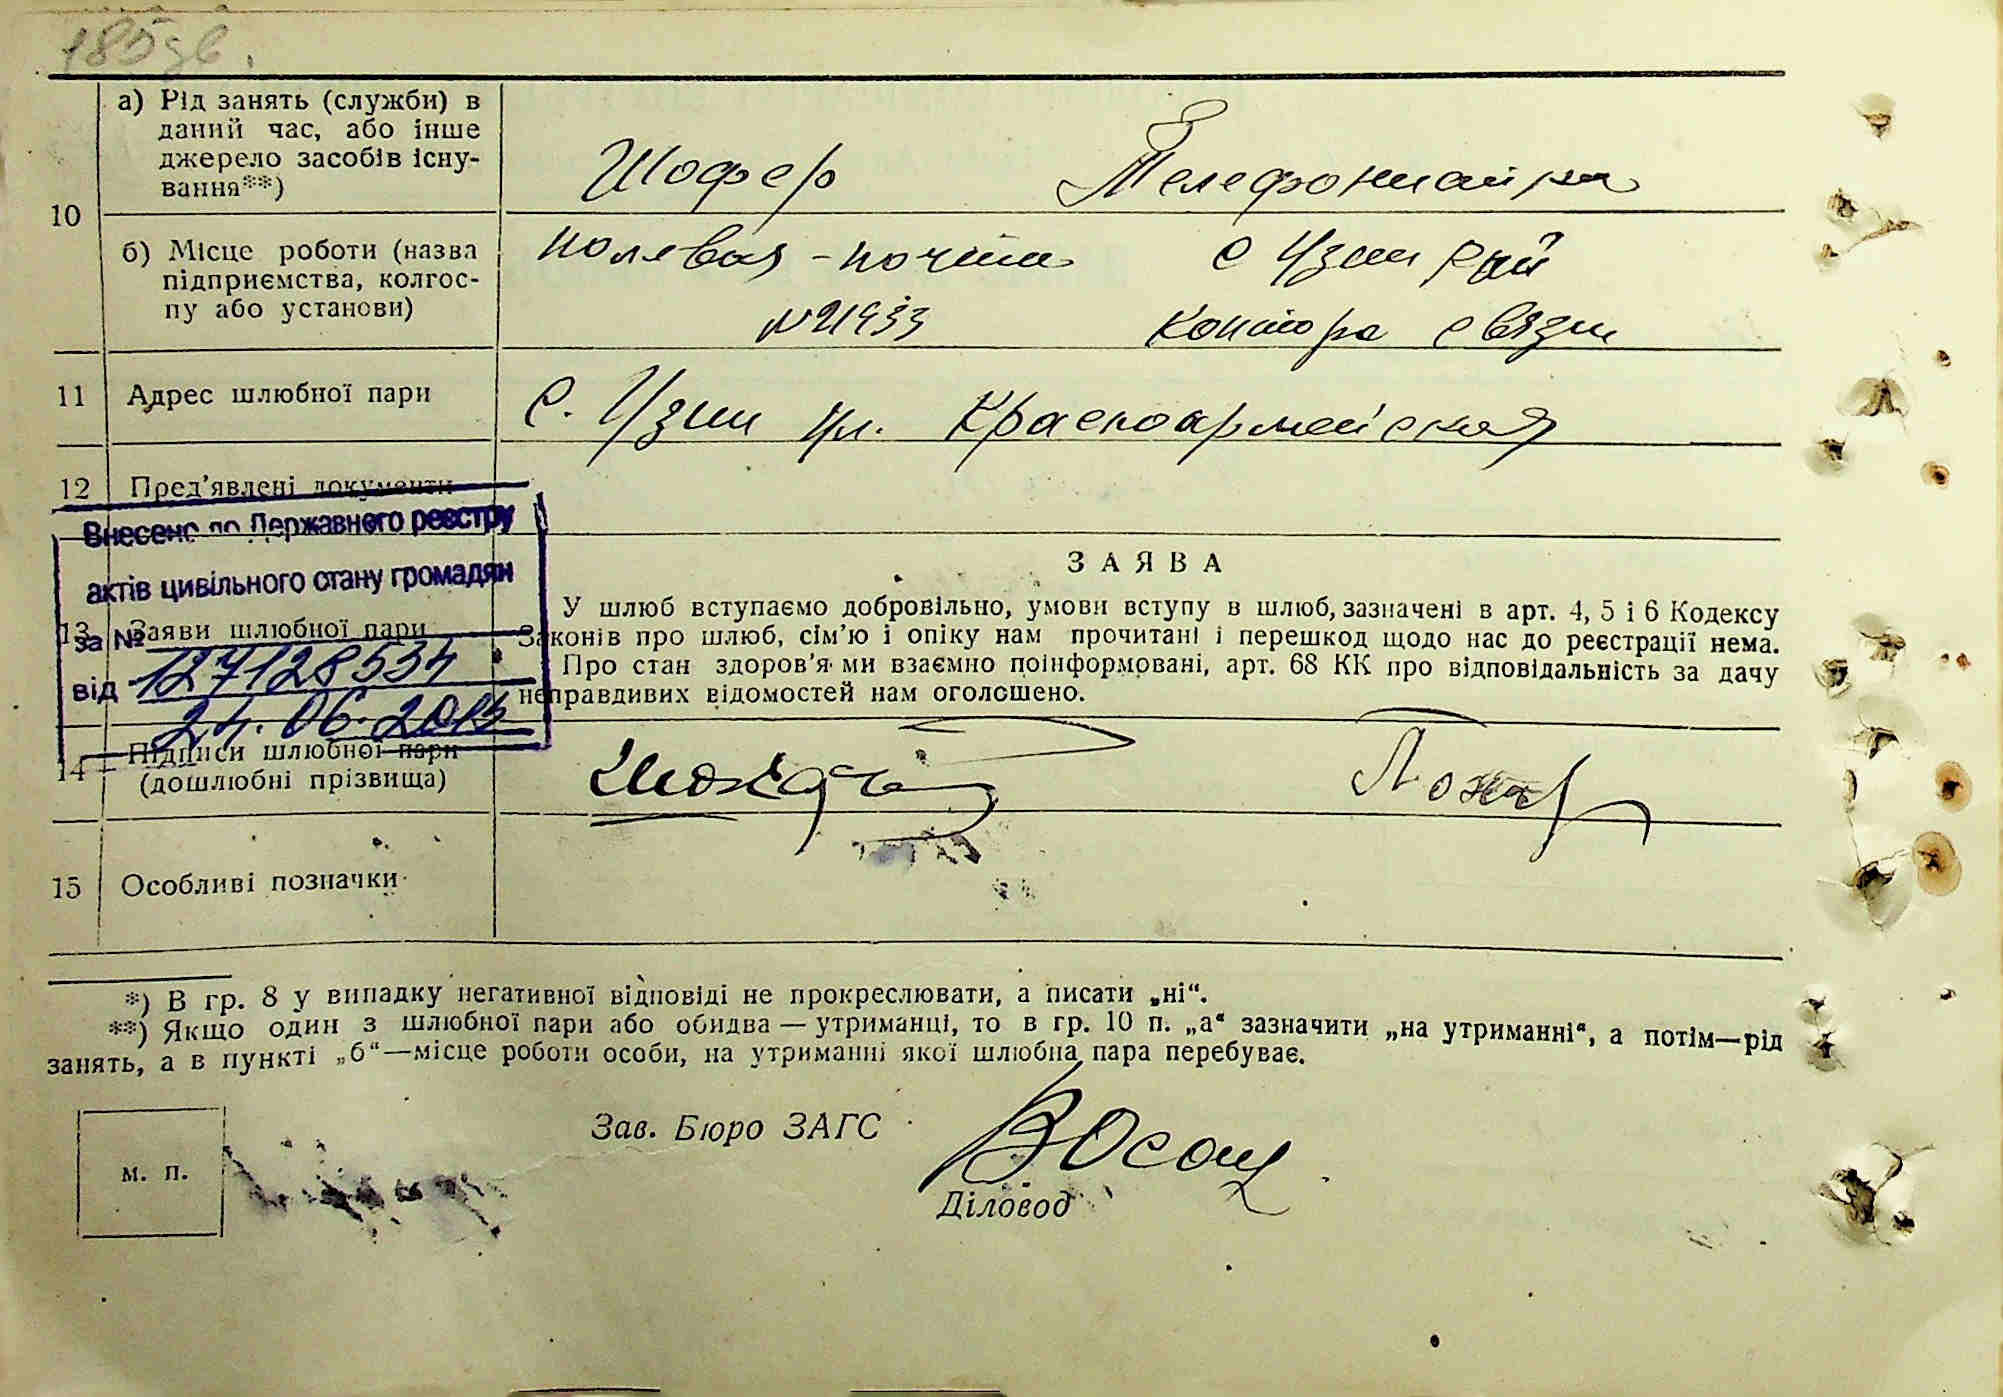 185зв.
а) Рід занять (служби) в
даний час, або інше
джерело засобів існу-
вання**)
Шофер Телефонистка
10
б) Місце роботи (назва
підприємства, колгос-
пу або установи)
полевая - почта с Узин рай
№ 21933 контора связи
11 Адрес шлюбної пари
с. Узин ул. Красноармейская
12 Пред'явлені документи
Внесено до Державного реєстру
актів цивільного стану громадян
за №
127128534
від
24.06.2013
13 Заяви шлюбної пари
ЗАЯВА
У шлюб вступаємо добровільно, умови вступу в шлюб, зазначені в арт. 4, 5 і 6 Кодексу
Законів про шлюб, сім'ю і опіку нам прочитані і перешкод щодо нас до реєстрації нема.
Про стан здоров'я ми взаємно поінформовані, арт. 68 КК про відповідальність за дачу
неправдивих відомостей нам оголошено.
14 Підписи шлюбної пари
(дошлюбні прізвища)
15 Особливі позначки
*) В гр. 8 у випадку негативної відповіді не прокреслювати, а писати „ні“.
**) Якщо один з шлюбної пари або обидва — утриманці, то в гр. 10 п. „а“ зазначити „на утриманні“, а потім—рід
занять, а в пункті „б“—місце роботи особи, на утриманні якої шлюбна пара перебуває.
Зав. Бюро ЗАГС
м. п.
Діловод